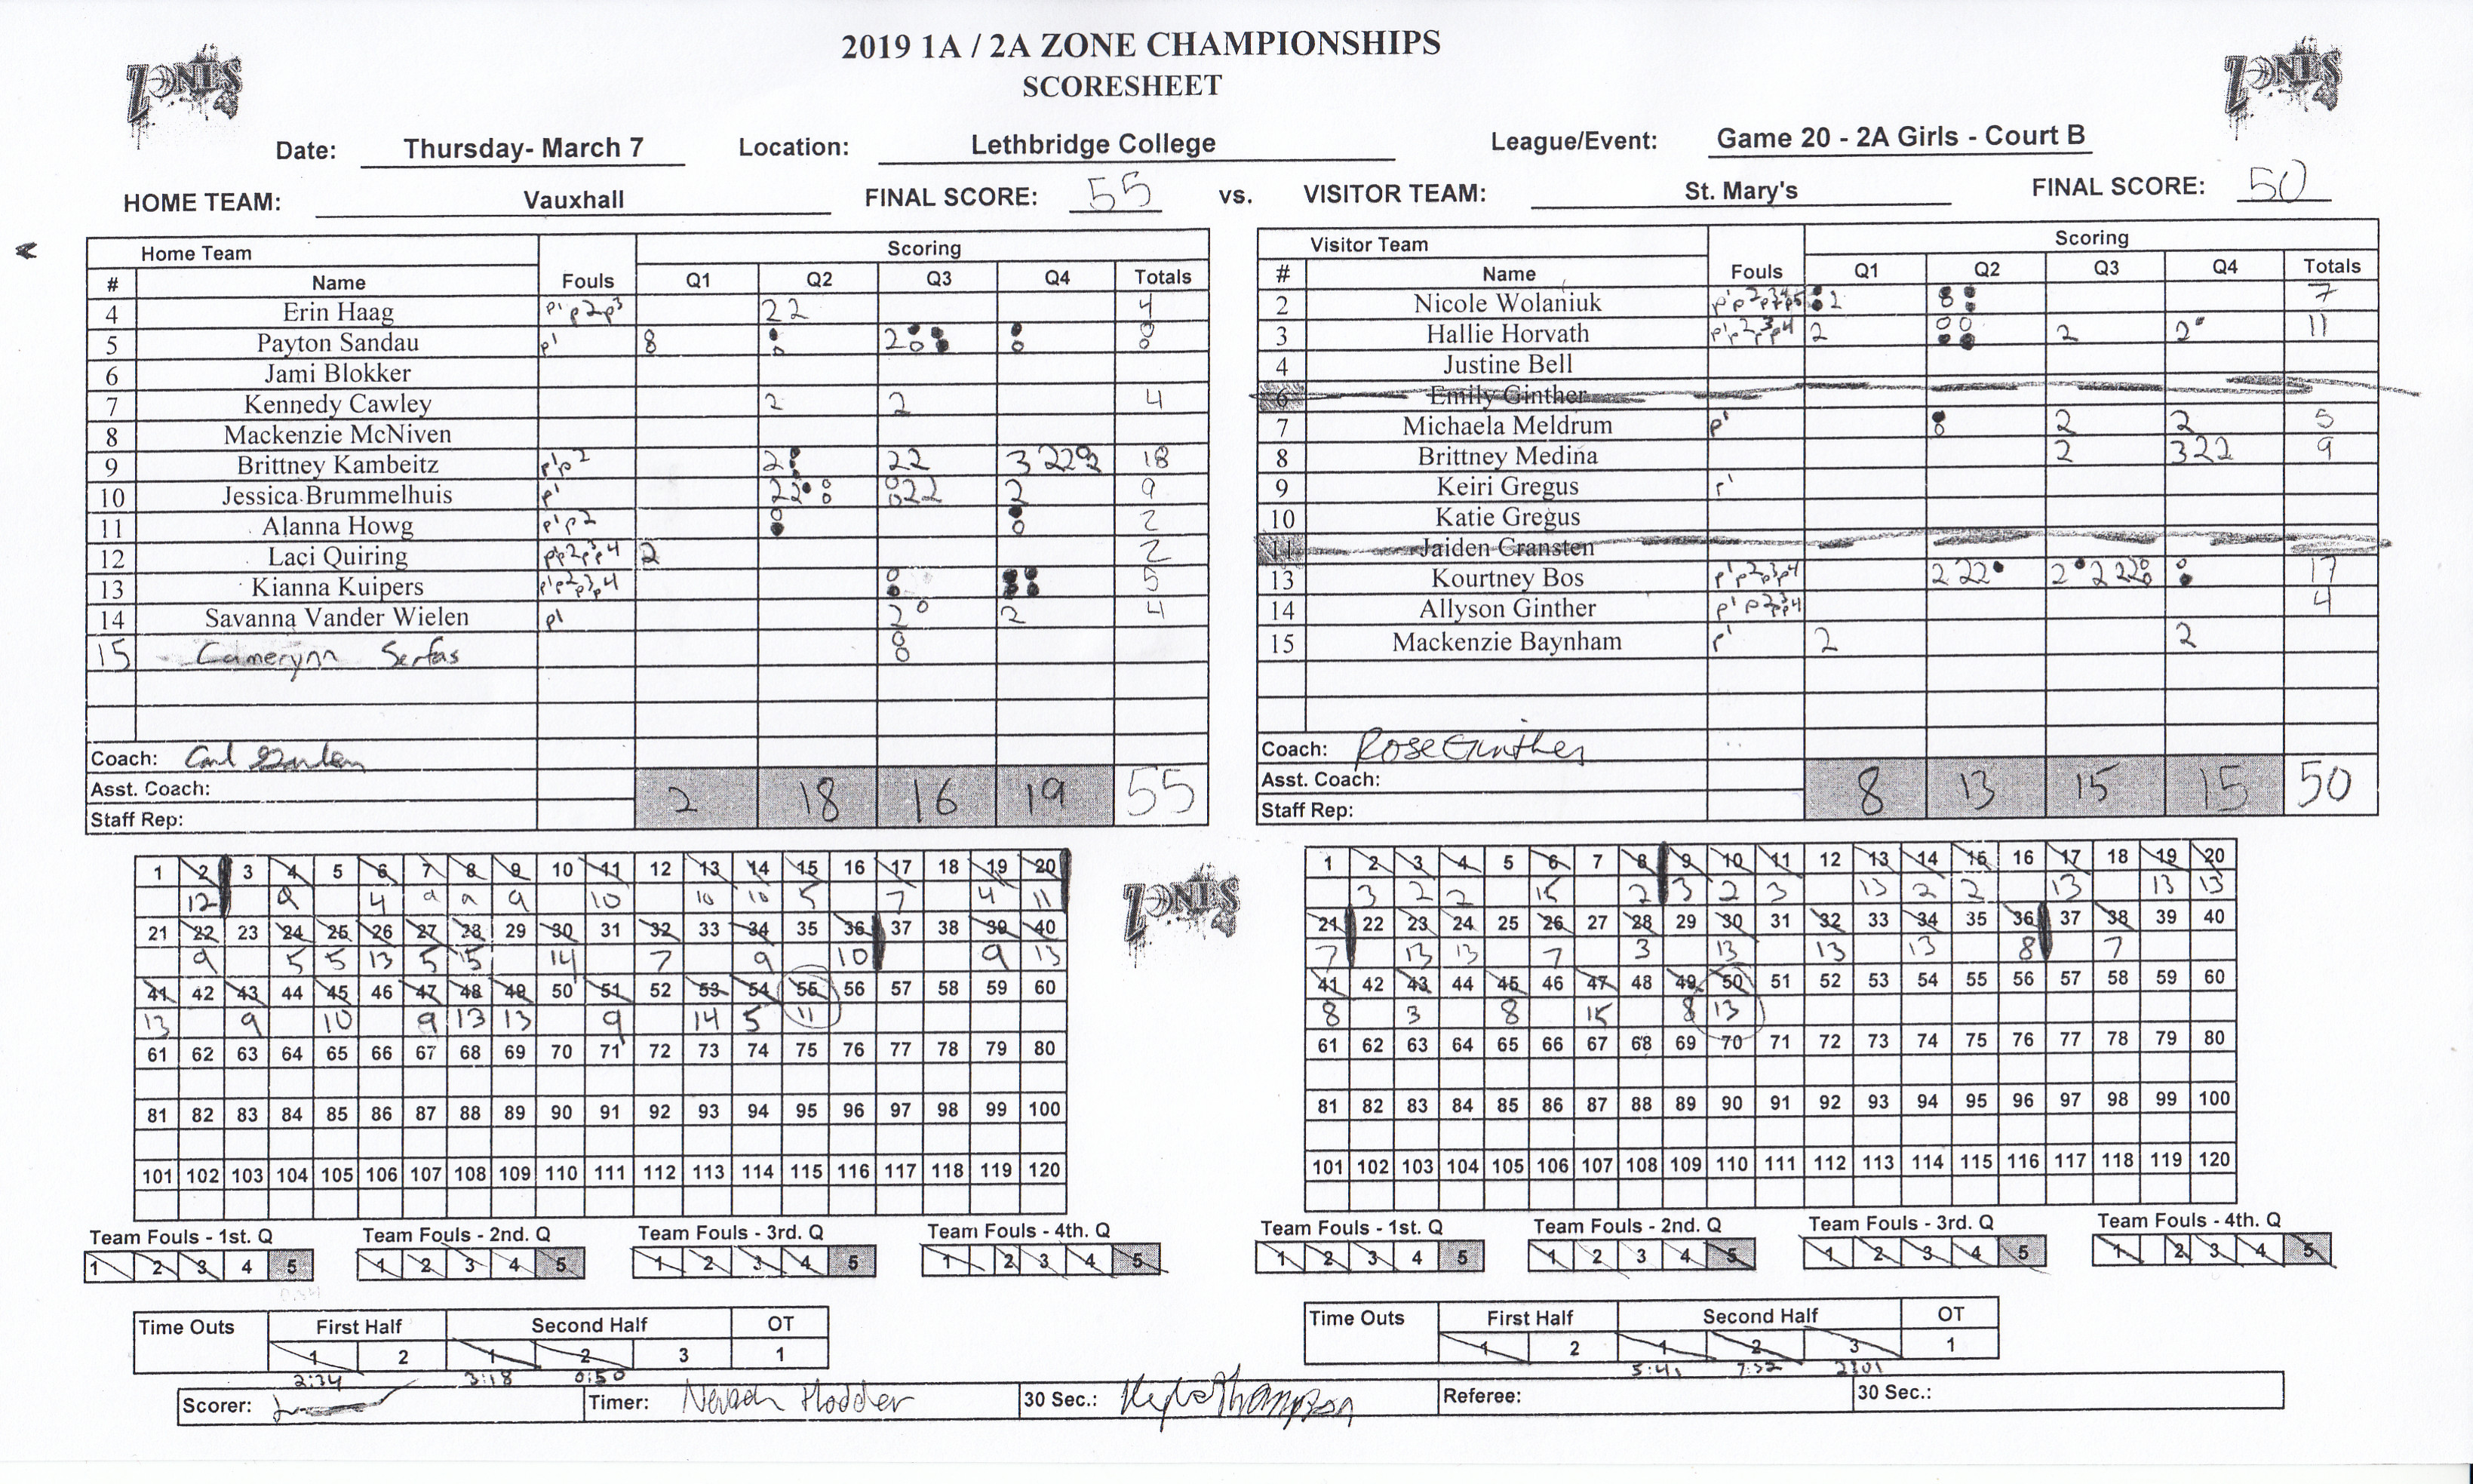 2019 1A / 2A ZONE CHAMPIONSHIPS
SCORESHEET
ZONES
ZONES
Date: Thursday- March 7 Location: Lethbridge College League/Event: Game 20 - 2A Girls - Court B
HOME TEAM: Vauxhall FINAL SCORE: 55 vs. VISITOR TEAM: St. Mary's FINAL SCORE: 50
Home Team Fouls Scoring
# Name Q1 Q2 Q3 Q4 Totals
4 Erin Haag p1 p2 p3 22 4
5 Payton Sandau p1 2 8
6 Jami Blokker
7 Kennedy Cawley 2 2 4
8 Mackenzie McNiven
9 Brittney Kambeitz p1 p2 2 22 3 22 2 18
10 Jessica Brummelhuis p1 22 22 2 9
11 Alanna Howg p1 p2 2
12 Laci Quiring p1 p2 p3 p4 2 2
13 Kianna Kuipers p1 p2 p3 p4 5
14 Savanna Vander Wielen p1 2 2 4
15 Camerynn Serfas
Coach:
Asst. Coach:
Staff Rep:
2 18 16 19 55
Visitor Team Fouls Scoring
# Name Q1 Q2 Q3 Q4 Totals
2 Nicole Wolaniuk p1 p2 p3 p4 p5 2 7
3 Hallie Horvath p1 p2 p3 p4 2 2 2 11
4 Justine Bell
6 Emily Ginther
7 Michaela Meldrum p1 2 2 5
8 Brittney Medina 2 322 9
9 Keiri Gregus p1
10 Katie Gregus
11 Jaiden Cransten
13 Kourtney Bos p1 p2 p3 p4 2 22 2 222 17
14 Allyson Ginther p1 p2 p3 p4 4
15 Mackenzie Baynham p1 2 2
Coach: Rose Ginther
Asst. Coach:
Staff Rep:
8 13 15 15 50
1 2 3 4 5 6 7 8 9 10 11 12 13 14 15 16 17 18 19 20
12 9 4 9 9 9 10 10 10 5 7 4 11
21 22 23 24 25 26 27 28 29 30 31 32 33 34 35 36 37 38 39 40
9 5 5 13 5 15 14 7 9 10 9 13
41 42 43 44 45 46 47 48 49 50 51 52 53 54 55 56 57 58 59 60
13 9 10 9 13 13 9 14 5 11
61 62 63 64 65 66 67 68 69 70 71 72 73 74 75 76 77 78 79 80
81 82 83 84 85 86 87 88 89 90 91 92 93 94 95 96 97 98 99 100
101 102 103 104 105 106 107 108 109 110 111 112 113 114 115 116 117 118 119 120
ZONES
1 2 3 4 5 6 7 8 9 10 11 12 13 14 15 16 17 18 19 20
3 2 2 15 2 3 2 3 13 2 2 13 13 13
21 22 23 24 25 26 27 28 29 30 31 32 33 34 35 36 37 38 39 40
7 13 13 7 3 13 13 13 8 7
41 42 43 44 45 46 47 48 49 50 51 52 53 54 55 56 57 58 59 60
8 3 8 15 8 13
61 62 63 64 65 66 67 68 69 70 71 72 73 74 75 76 77 78 79 80
81 82 83 84 85 86 87 88 89 90 91 92 93 94 95 96 97 98 99 100
101 102 103 104 105 106 107 108 109 110 111 112 113 114 115 116 117 118 119 120
Team Fouls - 1st. Q Team Fouls - 2nd. Q Team Fouls - 3rd. Q Team Fouls - 4th. Q
1 2 3 4 5 1 2 3 4 5 1 2 3 4 5 1 2 3 4 5
Team Fouls - 1st. Q Team Fouls - 2nd. Q Team Fouls - 3rd. Q Team Fouls - 4th. Q
1 2 3 4 5 1 2 3 4 5 1 2 3 4 5 1 2 3 4 5
Time Outs First Half Second Half OT
1 2 1 2 3 1
2:34 3:18 0:50
Time Outs First Half Second Half OT
1 2 1 2 3 1
5:41 7:32 2:01
Scorer: Timer: Hodder 30 Sec.: Kyle Thompson Referee: 30 Sec.: